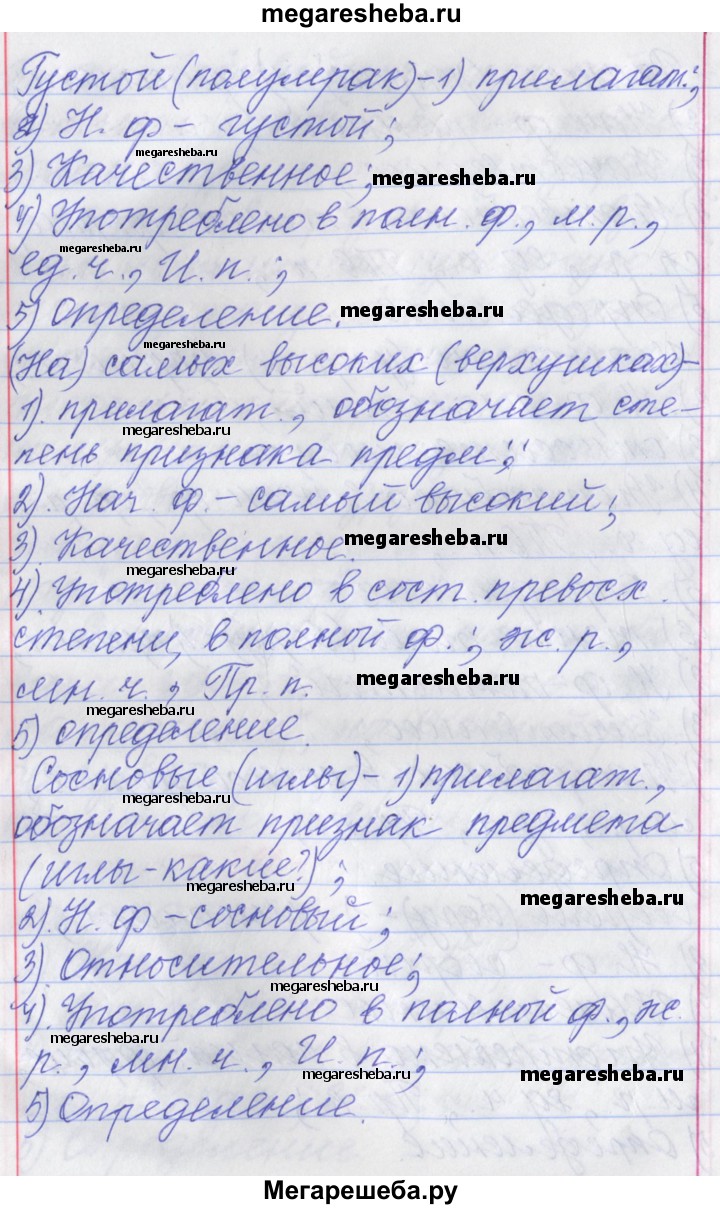 megaresheba.ru
Густой (полумрак) – 1) прилагат.;
2) Н. ф – густой;
megaresheba.ru
3) Качественное;
megaresheba.ru
4) Употреблено в полн. ф., м. р.,
megaresheba.ru
ед. ч., И. п.;
5) определение.
megaresheba.ru
megaresheba.ru
(На) самых высоких (верхушках) –
1). прилагат., обозначает сте-
megaresheba.ru
пень признака предм.;
2). Нач. ф. – самый высокий;
3). Качественное.
megaresheba.ru
megaresheba.ru
4). Употреблено в сост. превосх.
степени, в полной ф.; ж. р.,
мн. ч., Пр. п.
megaresheba.ru
megaresheba.ru
5) определение.
Сосновые (иглы) – 1) прилагат.,
megaresheba.ru
обозначает признак предмета
(иглы - какие?);
megaresheba.ru
megaresheba.ru
2). Н. ф – сосновый;
3). Относительное;
megaresheba.ru
4). Употреблено в полной ф., ж.
megaresheba.ru
р., мн. ч., И. п.;
megaresheba.ru
megaresheba.ru
5) Определение.
Мегарешеба.ру